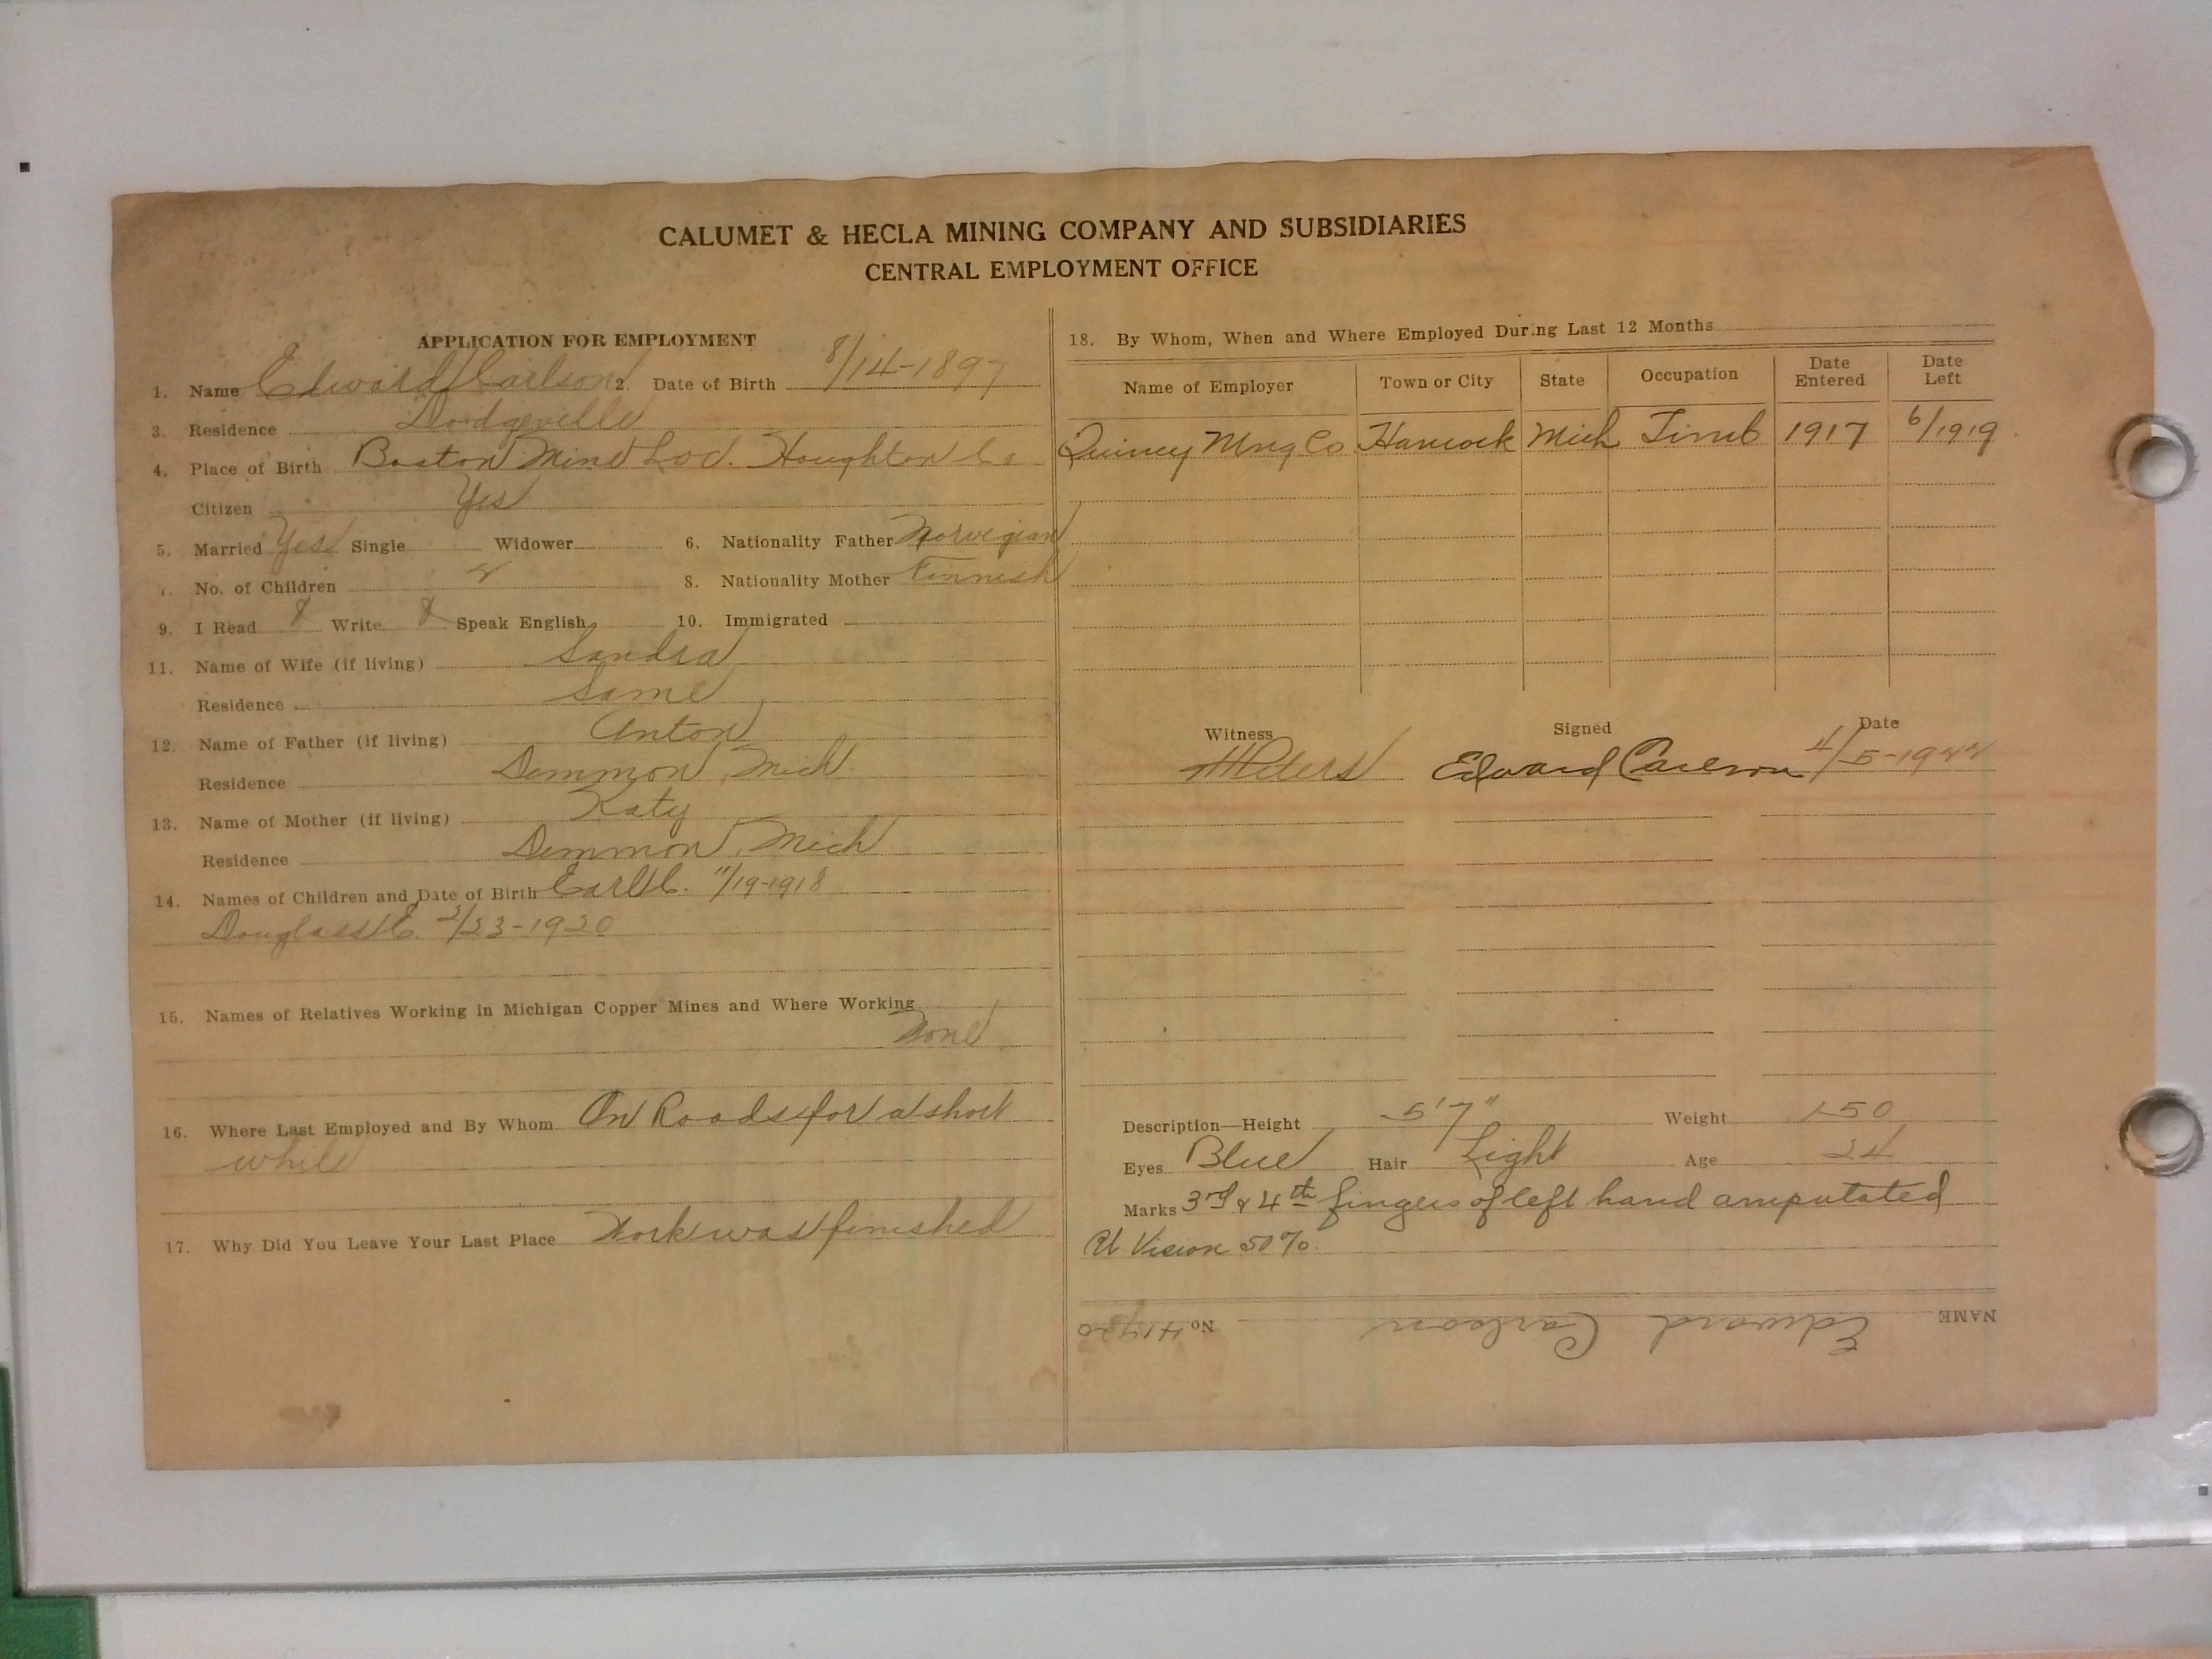 CALUMET & HECLA MINING COMPANY AND SUBSIDIARIES
CENTRAL EMPLOYMENT OFFICE
APPLICATION FOR EMPLOYMENT
1. Name Edward Carlson 2. Date of Birth 8/14-1897
3. Residence Dodgeville
4. Place of Birth Boston Mine Loc. Houghton Co
Citizen Yes
5. Married Yes Single Widower 6. Nationality Father Norwegian
No. of Children 2 8. Nationality Mother Finnish
9. I Read Write Speak English 10. Immigrated
11. Name of Wife (if living) Sandra
Residence Same
12. Name of Father (if living) Anton
Residence Demmon, Mich
13. Name of Mother (if living) Katy
Residence Demmon, Mich
14. Names of Children and Date of Birth Earl C. 11/19-1918
Douglass E. 2/23-1920
15. Names of Relatives Working in Michigan Copper Mines and Where Working
None
16. Where Last Employed and By Whom On Roads for a short
while
17. Why Did You Leave Your Last Place Work was finished
18. By Whom, When and Where Employed During Last 12 Months
Name of Employer Town or City State Occupation Date Entered Date Left
Quincy Mng Co Hancock Mich Timb 1917 6/1919
Witness Signed Date
Peters Edward Carlson 4/5-1922
Description—Height 5'7" Weight 150
Eyes Blue Hair Light Age 24
Marks 3rd & 4th fingers of left hand amputated
Vision 50%.
NAME Edward Carlson No.